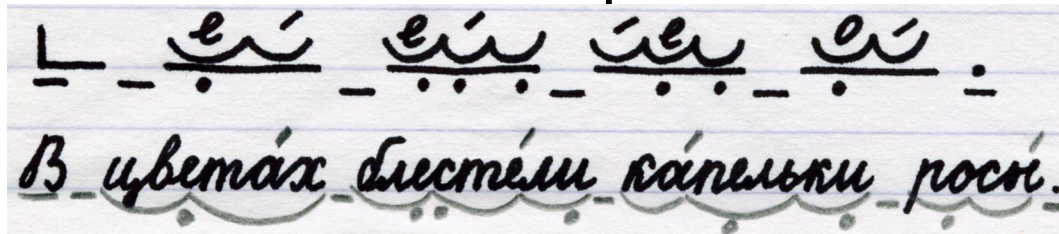 е е е о
В цвета́х блесте́ли ка́пельки росы́.